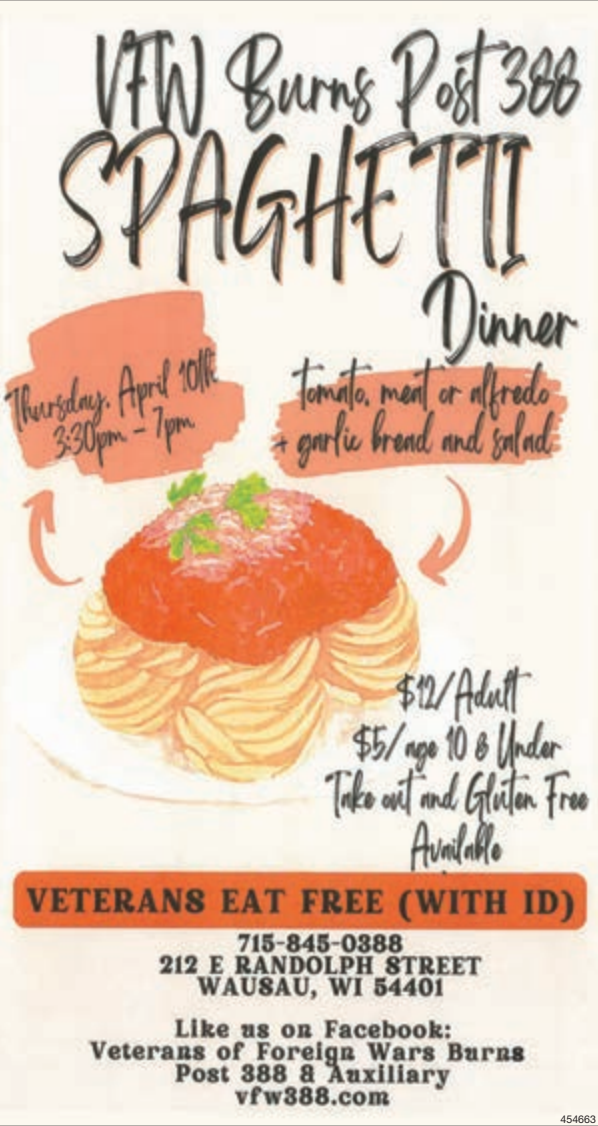 VFW Burns Post 388
SPAGHETTI
Dinner
Thursday, April 10th
3:30pm - 7pm
tomato, meat or alfredo
+ garlic bread and salad
$12/Adult
$5/age 10 & Under
Take out and Gluten Free
Available
VETERANS EAT FREE (WITH ID)
715-845-0388
212 E RANDOLPH STREET
WAUSAU, WI 54401
Like us on Facebook:
Veterans of Foreign Wars Burns
Post 388 & Auxiliary
vfw388.com
454663